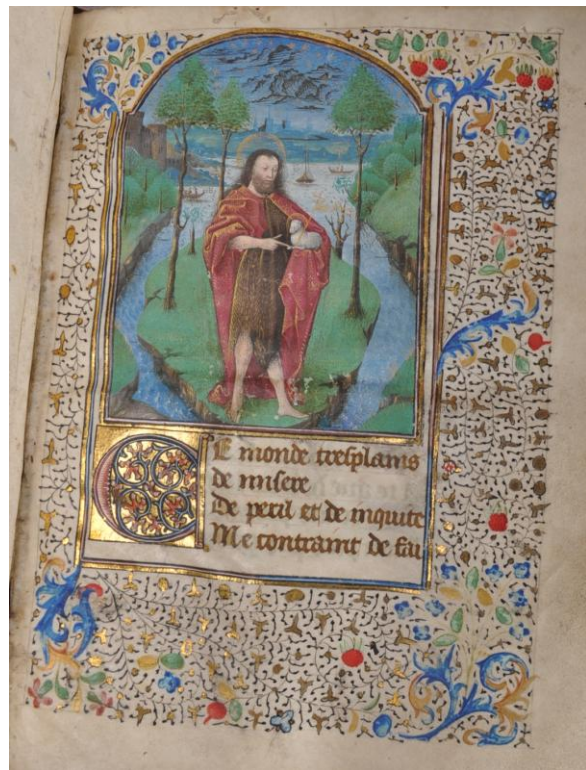 Ce monde tresplains
de misere
De peril et de iniquite
Me contraint de fai